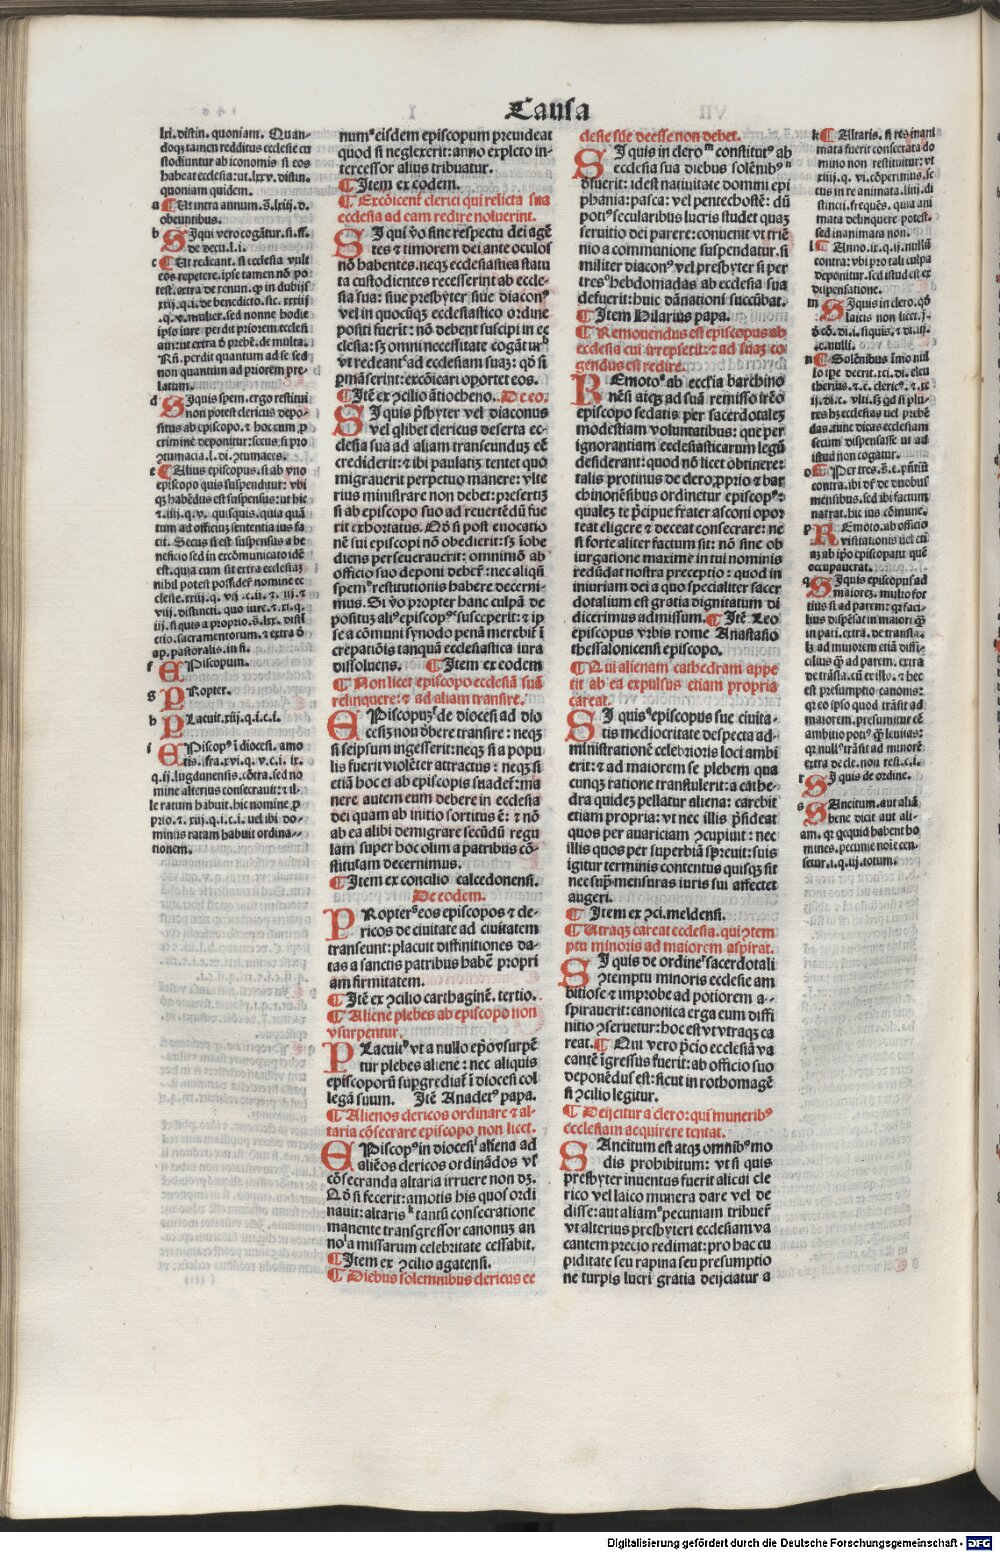 Causa
lxi. distin. quoniam. Quan-
doqȝ tamen redditus ecclesie cu
stodiuntur ab iconomis si eos
habeat ecclesia: ut. lxxv. distin.
quoniam quidem.
a ¶ Ut intra annum. s. lxiij. d.
obeuntibus.
b SI qui vero cogātur. ff. ff.
de decu. l. i.
c ¶ Ut redeant. si ecclesia vult
eos repetere. ipse tamen nō po
test. extra de renun. qp in dubijs
xxij. q. i. de benedicto. sic. xxxij
.q. v. mulier. sed nonne hodie
ipso iure perdit priorem ecclesi
am: ut extra d prebē. de multa.
Rñ. perdit quantum ad se sed
non quantum ad priorem pre-
latum.
d SI quis spem. ergo restitui
non potest clericus depo-
situs ab episcopo. ⁊ hoc cum p
crimine deponitur: secus si pro
ꝯtumacia. l. di. ꝯtumaces.
e ¶ Alius episcopus. si ab vno
episcopo quis suspenditur: vbi
qȝ habēdus est suspensus: ut hic
⁊. iiij. q. v. quisquis. quia quā
tum ad officiuȝ sententia ius fa
cit. Secus si est suspensus a be
neficio sed in excōmunicato idē
est. quia cum sit extra ecclesiaȝ
nihil potest possideř nomine ec
clesie. xxiij. q. vij .c. ij. ⁊. iij. ⁊
viij. distincti. quo iure. ⁊. xi. q.
iij. si quis a proprio. s. lxx. disti
ctio. sacramentorum. ⁊ extra d
ap. pastoralis. in fi.
f EPiscopum.
g PRopter.
h PLacuit. xiij. q. i. c. i.
i EPiscopꝰ i diocesi. amo
tis. ifra. xvi. q. v. c. i. ix.
q. ij. lugdunensis. cōtra. sed no
mine alterius consecrauit: ⁊ il-
le ratum habuit. hic nomine p
prio. ⁊. xij. q. i. c. i. uel ibi do-
minus ratam habuit ordina-
nonem.
numꝰ eisdem episcopum preuideat
quod si neglexerit: anno expleto in-
tercessor alius tribuatur.
¶ Item ex eodem.
¶ Excōicent clerici qui relicta sua
ecclesia ad eam redire noluerint.
SI qui v̄o sine respectu dei agē
tes ⁊ timorem dei ante oculos
nō habentes. neqȝ ecclesiastica statu
ta custodientes recesserint ab eccle-
sia sua: siue presbyter siue diaconꝰ
vel in quocūqȝ ecclesiastico ordine
positi fuerit: nō debent suscipi in ec
clesia: sȝ omni necessitate cogāturᵇ
vt redeantᶜ ad ecclesiam suaȝ: qđ si
pmāserint: excōicari oportet eos.
¶ Itē ex ꝯcilio ātiocheno. De eo.
SI quis p̄sbyter vel diaconus
vel qlibet clericus deserta ec-
clesia sua ad aliam transeunduȝ eē
crediderit: ⁊ ibi paulatiȝ tentet quo
migrauerit perpetuo manere: vlte
rius ministrare non debet: presertiȝ
si ab episcopo suo ad reuertēdū fue
rit exhortatus. Qđ si post euocatio
nē sui episcopi nō obedierit: sȝ iobe
diens perseuerauerit: omnimō ab
officio suo deponi debeř: nec aliquā
spemᵈ restitutionis habere decerni-
mus. Si v̄o propter hanc culpā de
posituȝ aliꝰ episcopꝰ susceperit: ⁊ ip
se a cōmuni synodo penā merebiř ⁊
crepatiōis tanquā ecclesiastica iura
dissoluens. ¶ Item ex eodem
¶ Non licet episcopo ecclesiā suā
relinquere: ⁊ ad aliam transire.
EPiscopuȝᶠ de diocesi ad dio
cesiȝ non dbere transire: neqȝ
si seipsum ingesserit: neqȝ si a popu
lis fuerit violēter attractus: neqȝ si
etiā hoc ei ab episcopis suadeř: ma
nere autem eum debere in ecclesia
dei quam ab initio sortitus ē: ⁊ nō
ab ea alibi demigrare secūdū regu
lam super hoc olim a patribus cō-
stitutam decernimus.
¶ Item ex concilio calcedonensi.
De eodem.
PRopterᵍ eos episcopos ⁊ cle-
ricos de ciuitate ad ciuitatem
transeunt: placuit diffinitiones da-
tas a sanctis patribus habeř propri
am firmitatem.
¶ Itē ex ꝯcilio carthaginē. tertio.
¶ Aliene plebes ab episcopo non
vsurpentur.
PLacuitʰ vt a nullo ep̄o vsurpē
tur plebes aliene: nec aliquis
episcoporū supgrediař i diocesi col
legā suum. Itē Anacletꝰ papa.
¶ Alienos clericos ordinare ⁊ al-
taria cōsecrare episcopo non licet.
EPiscopꝰ in diocesiⁱ aliena ad
aliēos clericos ordinādos vl̄
cōsecranda altaria irruere non dȝ.
Qđ si fecerit: amotis his quos ordi
nauit: altarisᵏ tantū consecratione
manente transgressor canonuȝ an
noˡ a missarum celebritate cessabit.
¶ Item ex ꝯcilio agatensi.
¶ Diebus solemnibus clericus ec
clesie sue deesse non debet.
SI quis in cleroᵐ constitutꝰ ab
ecclesia sua diebus solēnibꝰⁿ
dfuerit: id est natiuitate domini epi
phania: pasca: vel pentechostē: dū
potiꝰ secularibus lucris studet quaȝ
seruitio dei parere: conuenit vt triē
nio a communione suspendatur. si
militer diaconꝰ vel presbyter si per
tresᵒ hebdomadas ab ecclesia sua
defuerit: huic dānationi succūbat.
¶ Item Hilarius papa.
¶ Remouendus est episcopus ab
ecclesia cui irrepserit: ⁊ ad suaȝ co
gendus est redire.
REmotoᵖ ab ecclesia barchino
nēsi atqȝ ad suā remisso irēo
episcopo sedatis per sacerdotaleȝ
modestiam voluntatibus: que per
ignorantiam ecclesiasticarum legū
desiderant: quod nō licet obtinere:
talis protinus de clero pprio ⁊ bar
chinonēsibus ordinetur episcopꝰ:
qualeȝ te p̄cipue frater asconi opor
teat eligere ⁊ deceat consecrare: ne
si forte aliter factum sit: nō sine ob
iurgatione maxime in tui nominis
redūdat nostra preceptio: quod in
iniuriam dei a quo specialiter sacer
dotalium est gratia dignitatum di
dicerimus admissum. ¶ Itē Leo
episcopus vrbis rome Anastasio
thessalonicensi episcopo.
¶ Qui alienam cathedram appe
tit ab ea expulsus etiam propria
careat.
SI quisᑫ episcopus sue ciuita-
tis mediocritate despecta ad-
ministrationē celebrioris loci ambi
erit: ⁊ ad maiorem se plebem qua
cunqȝ ratione transtulerit: a cathe-
dra quideȝ pellatur aliena: carebit
etiam propria: vt nec illis p̄sideat
quos per auariciam ꝯcupiuit: nec
illis quos per superbiā spreuit: suis
igitur terminis contentus quisqȝ sit
nec sup mensuras iuris sui affectet
augeri.
¶ Item ex ꝯci. meldensi.
¶ Utraqȝ careat ecclesia. qui ꝯtem
ptu minoris ad maiorem aspirat.
SI quis de ordineʳ sacerdotali
ꝯtemptu minoris ecclesie am
bitiose ⁊ improbe ad potiorem a-
spirauerit: canonica erga eum diffi
nitio ꝯseruetur: hoc est vt vtraqȝ ca
reat. ¶ Qui vero p̄cio ecclesiā va
cantē igressus fuerit: ab officio suo
deponēdus est: sicut in rothomagē
si ꝯcilio legitur.
¶ Deijcitur a clero: qui muneribꝰ
ecclesiam acquirere tentat.
SAncitum est atqȝ omnibꝰ mo
dis prohibitum: vt si quis
presbyter inuentus fuerit alicui cle
rico vel laico munera dare vel de
disse: aut aliamˢ pecuniam tribueř
vt alterius presbyteri ecclesiam va
cantem precio redimat: pro hac cu
piditate seu rapina seu presumptio
ne turpis lucri gratia deijciatur a
k ¶ Altaris. si res inani
mata fuerit consecrata do
mino non restituitur: vt
xiiij. q. vi. cōpermus. se
cus in re animata. liiij. di
stincti. frequēs. quia ani
mata delinquere potest.
sed inanimata non.
l ¶ Anno. ix. q. ij. nullā
contra: vbi pro tali culpa
deponitur. sed istud est ex
dispensatione.
m SI quis in clero. qđ
laicis non licet.
ō cō. di. i. si quis. ⁊ di. iij.
.c. nulli.
n ¶ Solēnibus īmo nul
lo ipe deerit. xci. di. eleu
therius. ⁊. c. clericꝰ. ⁊. xi
ij. di. c. vlti. sȝ qđ si plu-
res hȝ ecclesias uel prebē
das. tunc dicas ecclesiam
secum dispensasse ut ad
istud non cogatur.
o ¶ Per tres. s. e. pn̄tiū
contra. ibi de duobus
mensibus. sed ibi factum
narrat. hic ius cōmune.
p REmoto. ab officio
visitationis uel cū
aȝ ab ipo episcopatu quē
occupauerat.
q SI quis episcopus ad
maioreȝ. multo for
tius si ad parem: qȝ faci-
lius dispēsat in maiori q̄ȝ
in pari. extra. de transla.
lȝ ad minorem etiā diffi-
cilius q̄ȝ ad parem. extra
de trāsla. cū ex illo. ⁊ hec
est presumptio canonis:
qȝ eo ipso quod trāsit ad
maiorem. presumitur ex
ambitio potiꝰ q̄ȝ leuitas:
qȝ nullꝰ trāsit ad minorē
extra de ele. non est. c. i.
r SI quis de ordine.
s SAncitum. aut aliā
bene dicit aut ali-
am. qȝ qcquid habent ho
mines. pecunie noīe cen-
setur. i. q. iij. totum.
Digitalisierung gefördert durch die Deutsche Forschungsgemeinschaft - DFG